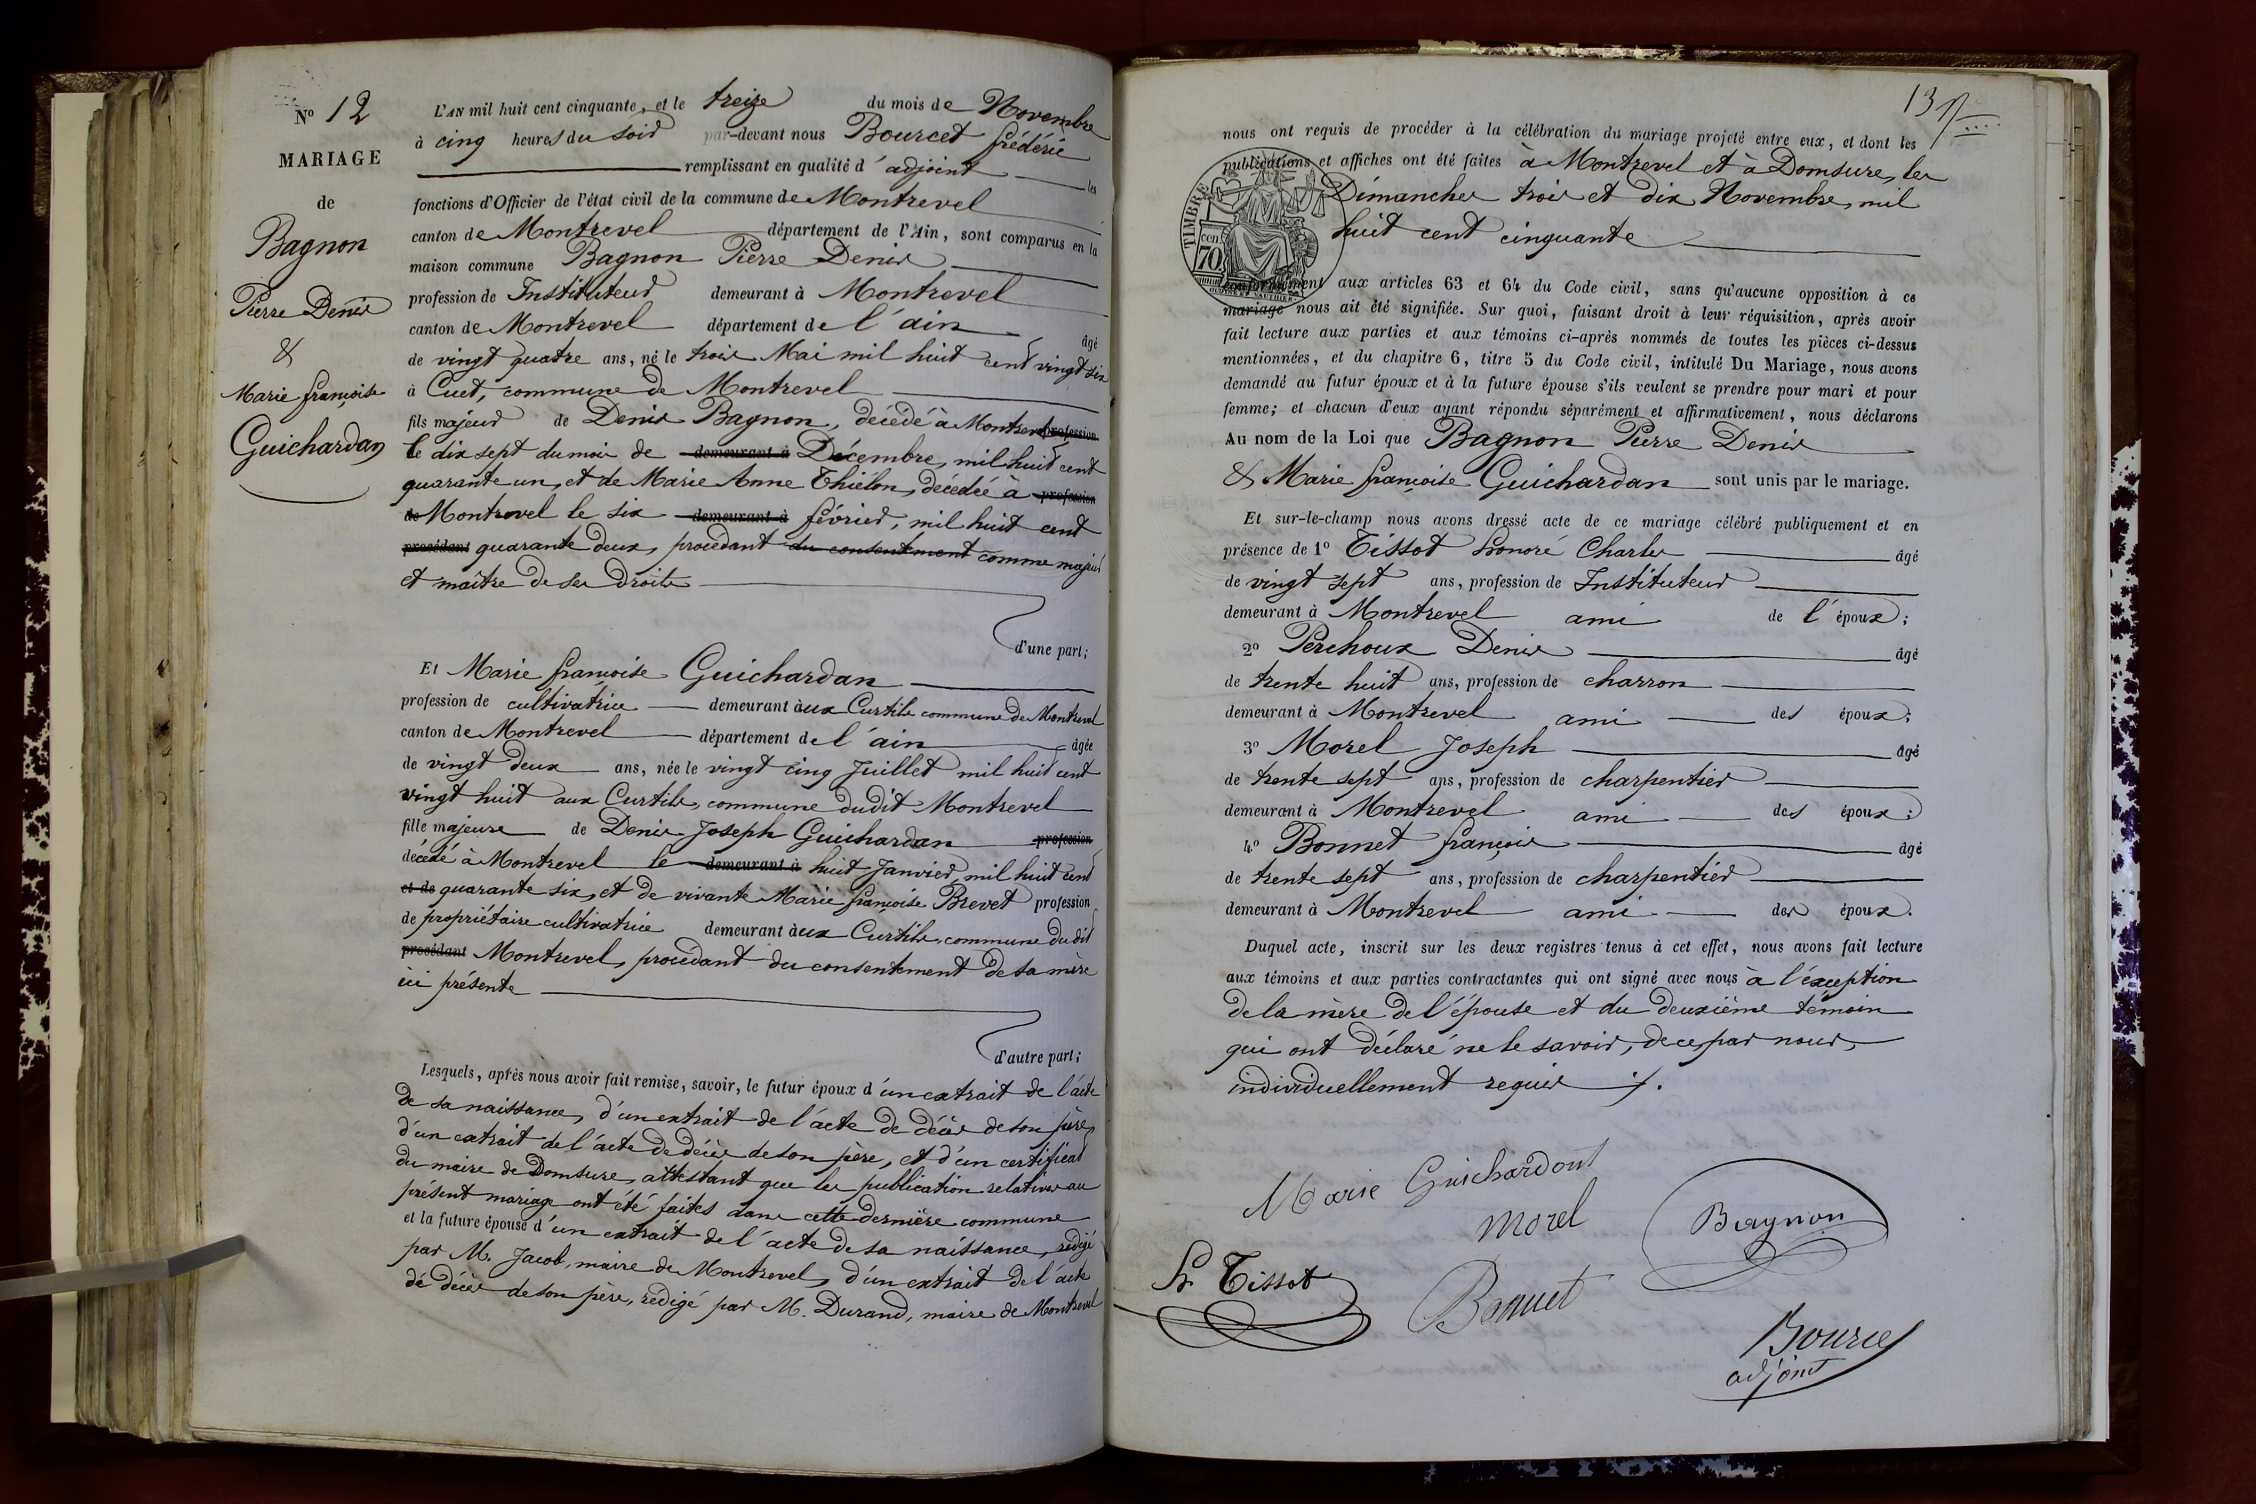 No 12
MARIAGE
de
Bagnon
Pierre Denis
&
Marie françoise
Guichardan
L'AN mil huit cent cinquante, et le treize du mois de Novembre
à cinq heures du soir par-devant nous Bourcet frédéric
remplissant en qualité d'adjoint les
fonctions d'Officier de l'état civil de la commune de Montrevel
canton de Montrevel département de l'Ain, sont comparus en la
maison commune Bagnon Pierre Denis
profession de Instituteur demeurant à Montrevel
canton de Montrevel département de l'ain âgé
de vingt quatre ans, né le trois Mai mil huit cent vingt six
à Cuet, commune de Montrevel
fils majeur de Denis Bagnon, décédé à Montrevel profession
le dix sept du mois de demeurant à Décembre, mil huit cent
quarante un, et de Marie Anne Thielon, décédée à profession
de Montrevel le six demeurant à février, mil huit cent
procédant quarante deux, procédant du consentement comme majeur
et maître de ses droits
d'une part;
Et Marie françoise Guichardan
profession de cultivatrice demeurant aux Curtils commune de Montrevel
canton de Montrevel département de l'ain âgée
de vingt deux ans, née le vingt cinq Juillet mil huit cent
vingt huit aux Curtils, commune dudit Montrevel
fille majeure de Denis Joseph Guichardan profession
décédé à Montrevel le demeurant à huit Janvier, mil huit cent
et de quarante six, et de vivante Marie françoise Brevet profession
de propriétaire cultivatrice demeurant aux Curtils, commune dudit
procédant Montrevel, procédant du consentement de sa mère
ici présente
d'autre part;
Lesquels, après nous avoir fait remise, savoir, le futur époux d'un extrait de l'acte
de sa naissance, d'un extrait de l'acte de décès de son père,
d'un extrait de l'acte de décès de son père, et d'un certificat
du maire de Domsure, attestant que les publication relatives au
présent mariage ont été faites dans cette dernière commune
et la future épouse d'un extrait de l'acte de sa naissance, rédigé
par M. Jacob, maire de Montrevel, d'un extrait de l'acte
de décès de son père, redigé par M. Durand, maire de Montrevel
13
nous ont requis de procéder à la célébration du mariage projeté entre eux, et dont les
publications et affiches ont été faites à Montrevel et à Domsure, les
Dimanches trois et dix Novembre, mil
huit cent cinquante
TIMBRE
70 cen.
conformément aux articles 63 et 64 du Code civil, sans qu'aucune opposition à ce
mariage nous ait été signifiée. Sur quoi, faisant droit à leur réquisition, après avoir
fait lecture aux parties et aux témoins ci-après nommés de toutes les pièces ci-dessus
mentionnées, et du chapitre 6, titre 5 du Code civil, intitulé Du Mariage, nous avons
demandé au futur époux et à la future épouse s'ils veulent se prendre pour mari et pour
femme; et chacun d'eux ayant répondu séparément et affirmativement, nous déclarons
Au nom de la Loi que Bagnon Pierre Denis
& Marie françoise Guichardan sont unis par le mariage.
Et sur-le-champ nous avons dressé acte de ce mariage célébré publiquement et en
présence de 1o Tissot honoré Charles âgé
de vingt sept ans, profession de Instituteur
demeurant à Montrevel ami de l'époux;
2o Perchoux Denis âgé
de trente huit ans, profession de charron
demeurant à Montrevel ami des époux;
3o Morel Joseph âgé
de trente sept ans, profession de charpentier
demeurant à Montrevel ami des époux;
4o Bonnet françois âgé
de trente sept ans, profession de charpentier
demeurant à Montrevel ami des époux.
Duquel acte, inscrit sur les deux registres tenus à cet effet, nous avons fait lecture
aux témoins et aux parties contractantes qui ont signé avec nous à l'éxception
de la mère de l'épouse et du deuxième témoin
qui ont déclaré ne le savoir, de ce, par nous,
individuellement requis ./.
Marie Guichardont
Morel
Bagnon
h. Tissot
Bonnet
Bource
adjoint